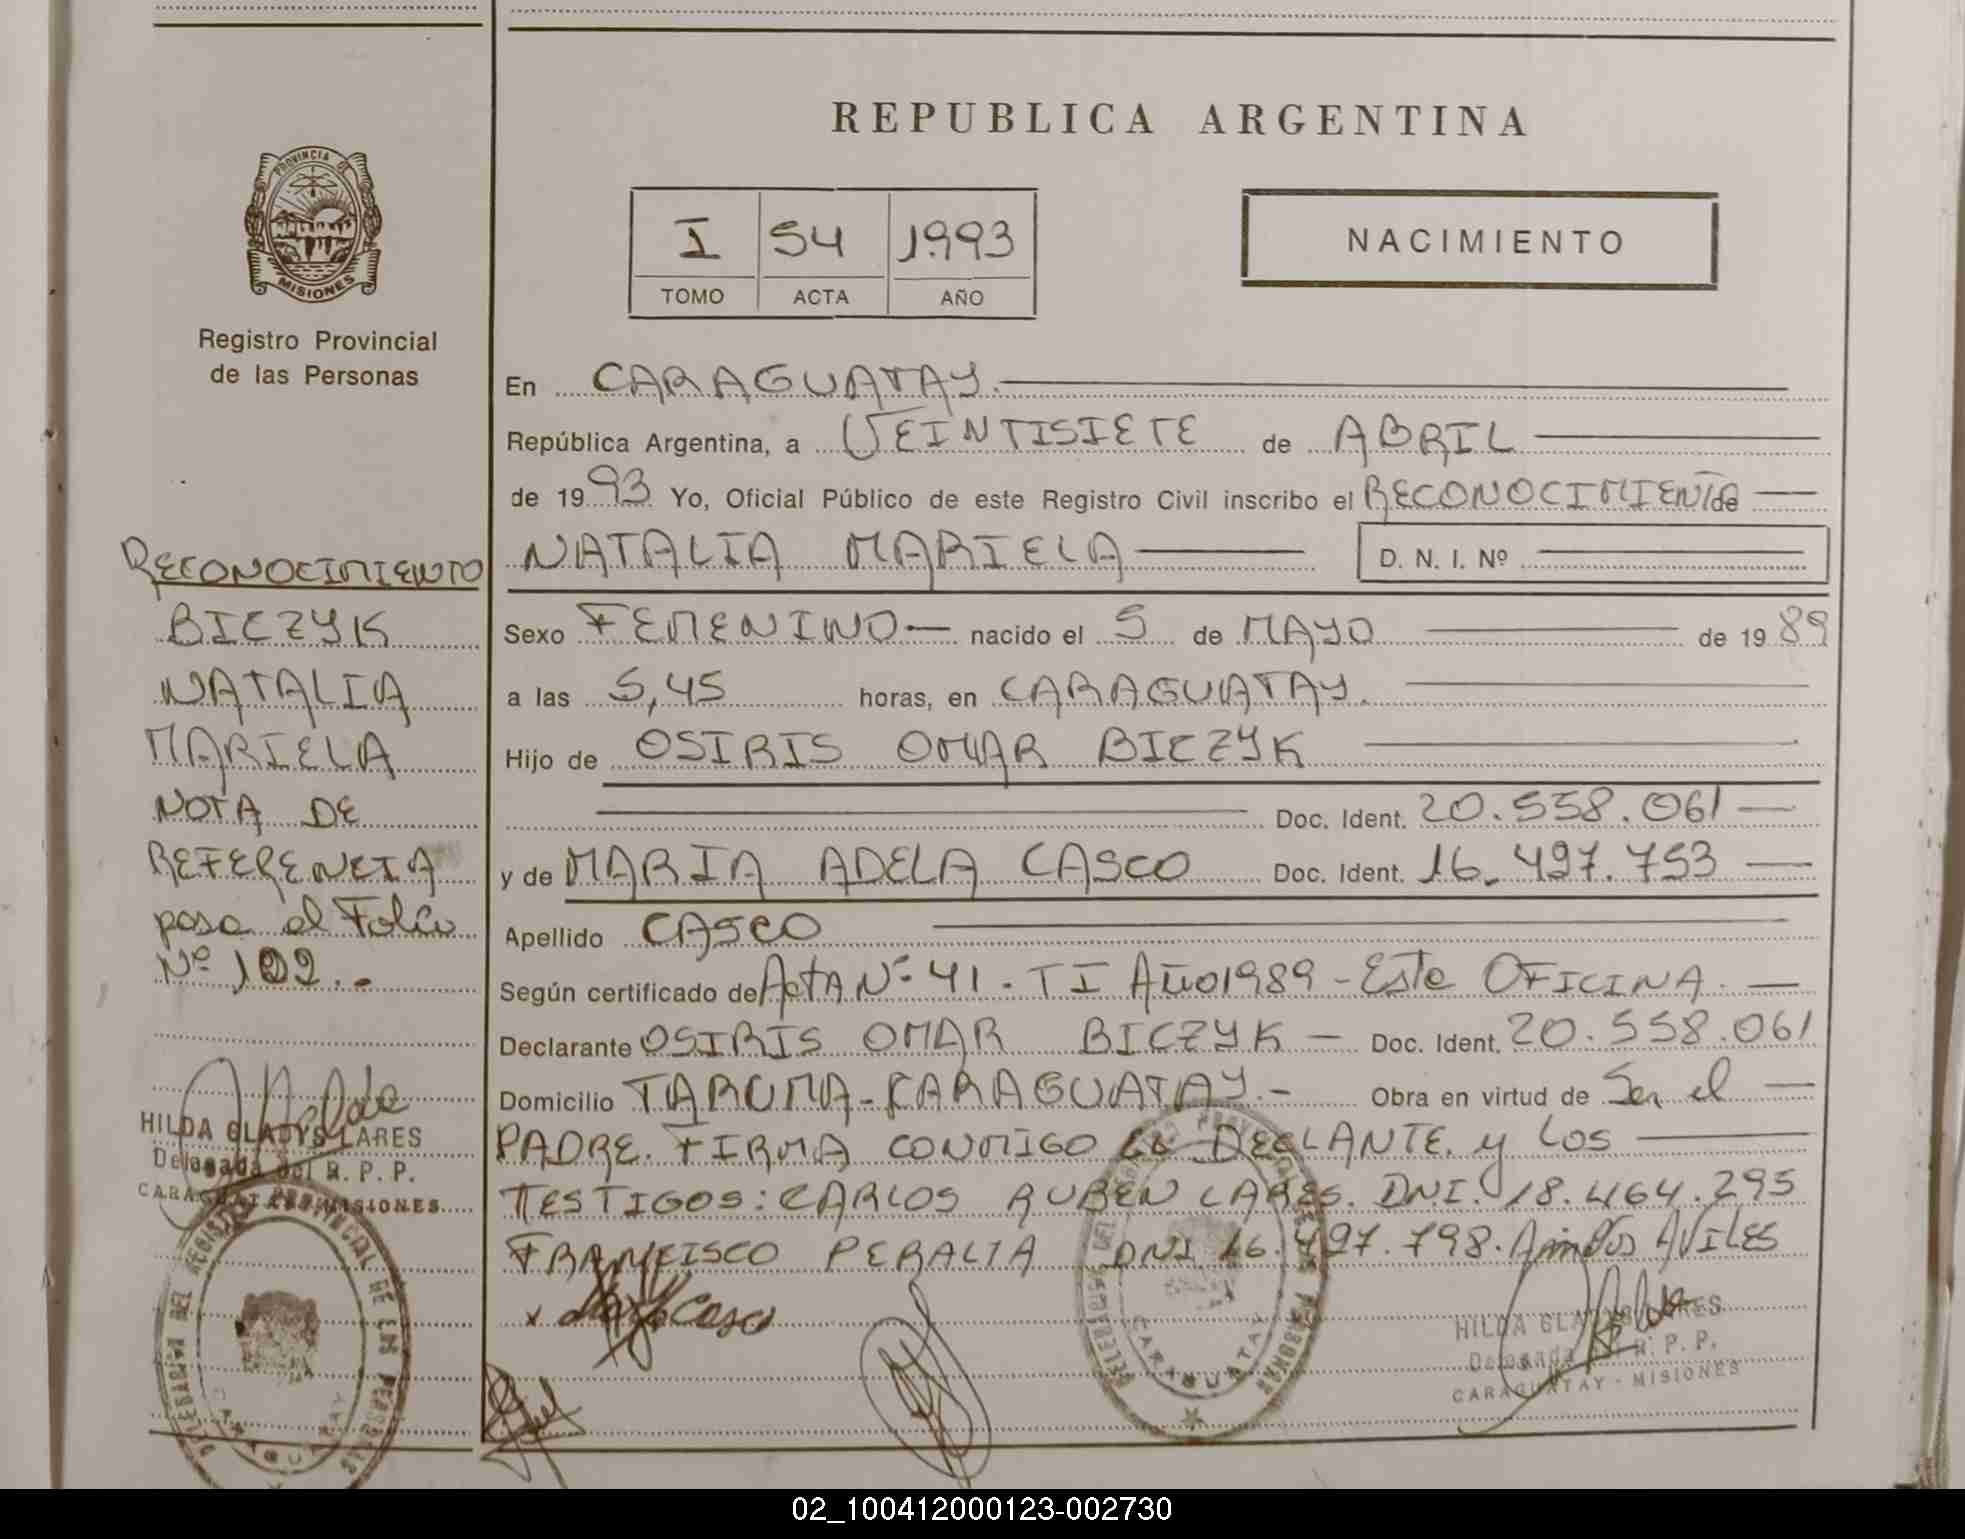 REPUBLICA ARGENTINA
PROVINCIA DE
MISIONES
Registro Provincial
de las Personas
I 54 1993
TOMO ACTA AÑO
NACIMIENTO
En CARAGUATAY.
República Argentina, a VEINTISIETE de ABRIL
de 1993 Yo, Oficial Público de este Registro Civil inscribo el RECONOCIMIENTO de
NATALIA MARIELA D. N. I. Nº
Sexo FEMENINO nacido el 5 de MAYO de 1989
a las 5,45 horas, en CARAGUATAY.
Hijo de OSIRIS OMAR BICZYK
Doc. Ident. 20.558.061
y de MARIA ADELA CASCO Doc. Ident. 16.497.753
Apellido CASCO
Según certificado de ActA Nº 41. TI Año 1989 - Este OFICINA.
Declarante OSIRIS OMAR BICZYK Doc. Ident. 20.558.061
Domicilio TARUMA-CARAGUATAY.- Obra en virtud de Ser el
PADRE. FIRMA CONMIGO EL DECLANTE. y Los
TESTIGOS: CARLOS RUBEN LARES. DNI. 18.464.295
FRANCISCO PERALTA DNI 16.497.798. AmBos AVILES
x Casco
HILDA GLADYS LARES
Delegada del R. P. P.
CARAGUATAY - MISIONES
RECONOCIMIENTO
BICZYK
NATALIA
MARIELA
NOTA DE
REFERENCIA
pasa al Folio
Nº 102.-
HILDA GLADYS LARES
Delegada del R. P. P.
CARAGUATAY - MISIONES
DELEGACION DEL REGISTRO PROVINCIAL DE LAS PERSONAS
CARAGUATAY
DELEGACION DEL REGISTRO PROVINCIAL DE LAS PERSONAS
CARAGUATAY
02_100412000123-002730